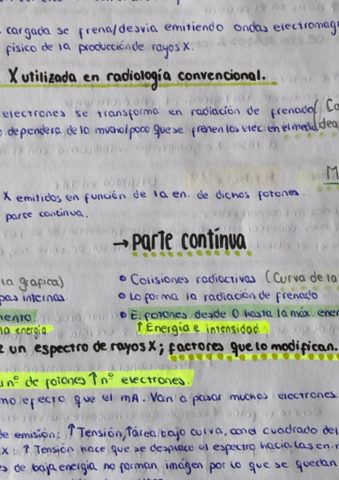 cargada se frena/desvía emitiendo ondas electromag
físico de la producción de rayos X.
X utilizada en radiología convencional.
electrones se transforma en radiación de frenado (Co
dependerá de lo mucho/poco que se frenen los elec. en el media dea
M
X emitidos en función de la en. de dichos fotones.
parte continua.
→ Parte continua
la gráfica)
• Colisiones radiactivas (Curva de la
pas internas
• Lo forma la radiación de frenado
mento
• E. fotones desde 0 hasta la máx. ener
la energía
↑ Energía e intensidad.
e un espectro de rayos X; factores que lo modifican.
nº de fotones ↑ nº electrones.
mo efecto que el mA. Van a pasar muchos electrones
de emisión; ↑ Tensión, ↑ área bajo curva, con el cuadrado del
X: ↑ Tensión hace que se desplace el espectro hacia las en. m
es de baja energía no forman imágen por lo que se quedan